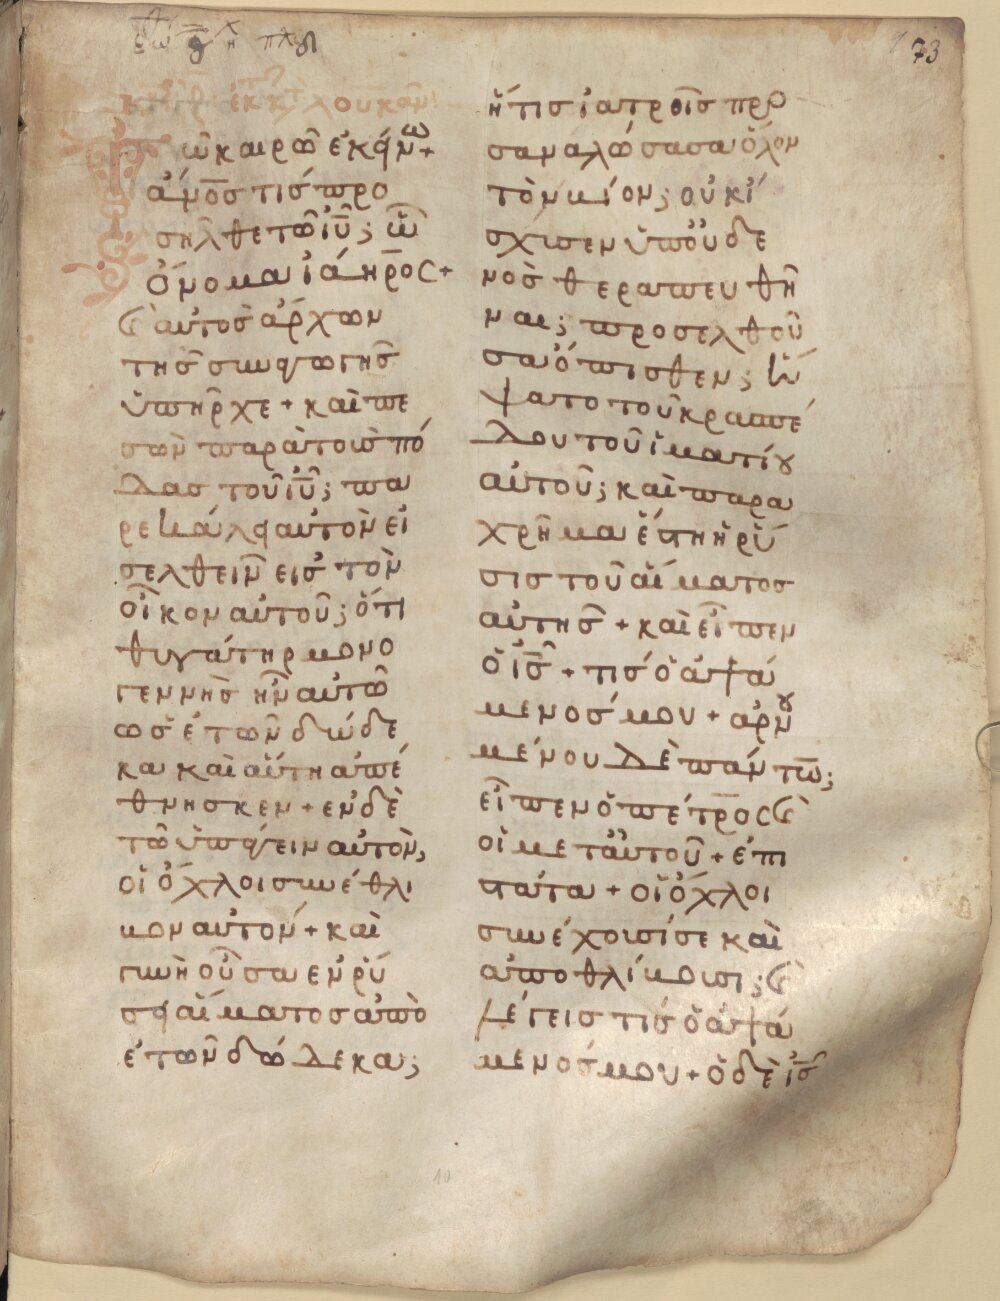 73
ἐκ τ λουκαν
Τῶ καιρῶ ἐκείνω +
ἄν̅ο̅ς τίς προ
σῆλθε τῶ ἰ̅υ̅; ὧ
ὄνομα ἰάηρος +
ϗ αὐτὸς ἄρχων
τῆς συναγωγῆς
ὑπῆρχε + καὶ πε
σὼν παρὰ τοὺς πό
δας τοῦ ἰ̅υ̅; πα
ρεκάλει αὐτὸν εἰ
σελθεῖν εἰς τὸν
οἶκον αὐτοῦ; ὅτι
θυγάτηρ μονο
γεννὴς ἦν αὐτῶ
ὡς ἐτῶν δώδε
κα καὶ αὕτη ἀπέ
θνησκεν + ἐν δὲ
τῶ ὑπάγειν αὐτὸν;
οἱ ὄχλοι συνέθλι
βον αὐτόν + καὶ
γυνὴ οὖσα ἐν ῥύ
σει αἵματος ἀπὸ
ἐτῶν δώδεκα;
ἥτις ἰατροῖς προ
σαναλώσασα ὅλον
τὸν βίον; οὐκ ἴ
σχυσεν ὑπ' οὐδε
νὸς θεραπευθῆ
ναι; προσελθοῦ
σα ὄπισθεν; ἥ
ψατο τοῦ κρασπέ
δου τοῦ ἱματίου
αὐτοῦ; καὶ παρα
χρῆμα ἔστη ἡ ῥύ
σις τοῦ αἵματος
αὐτῆς + καὶ εἶπεν
ὁ ἰ̅ς̅ + τίς ὁ ἁψά
μενός μου + ἀρνου
μένου δὲ πάντω̅;
εἶπεν ὁ πέτρος ϗ
οἱ μετ' αὐτοῦ + ἐπι
στάτα + οἱ ὄχλοι
συνέχουσί σε καὶ
ἀποθλίβουσι; ϗ
λέγεις τίς ὁ ἁψά
μενός μου + ὁ δὲ ἰ̅ς̅
10